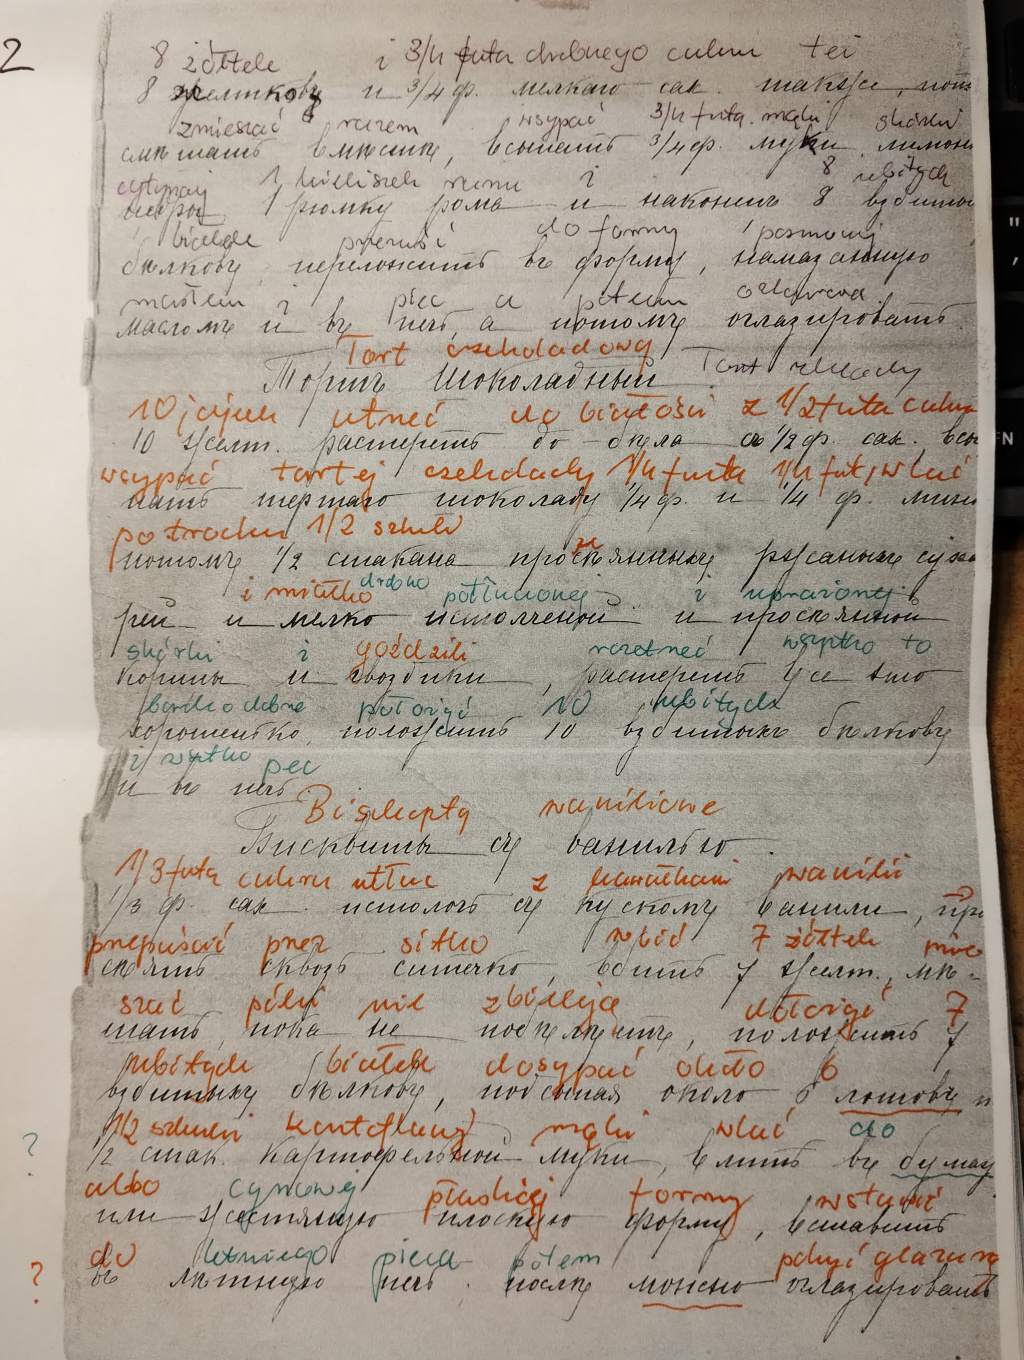 2
8 żółtek i 3/4 futa drobnego cukru też
8 желтковъ и 3/4 ф. мелкаго сах. также, пот
zmieszać razem wsypać 3/4 futa mąki skórki
смѣшать вмѣстѣ, всыпать 3/4 ф. муки, лимонн
cytrynej 1 kieliszek rumu i 8 ubitych
цедры 1 рюмку рома и наконецъ 8 взбиты
białek do formy posmaruj
бѣлковъ, переложить въ форму, намазанную
masłem i piec a potem
масломъ и въ печь, а потомъ оглазировать.
Tort czekoladowy
Тортъ Шоколадный Tort
10 jajek utrzeć do białości z 1/2 futa cukru
10 желт. растереть до бѣла съ 1/2 ф. сах. всы
wsypać tartej czekolady 1/4 futa 1/4 fut, wlać
пать тертаго шоколаду 1/4 ф. и 1/4 ф. минд
po trochu 1/2 szkl
потомъ 1/2 стакана просѣянныхъ ржаныхъ суха
i miałko drobno potłuczonej i
рей и мелко истолченой и просѣянной
skórki i goździki rozetrzeć wszytko to
корицы и гвоздики, растереть все это
bardzo dobrze położyć 10 ubitych
хорошенько, положить 10 взбитыхъ бѣлковъ
i wszytko pec
и въ печь.
Biszkopty waniliowe
Бисквиты съ ванилью.
1/3 futa cukru utłuc z kawałkami wanilii
1/3 ф. сах. истолочь съ кускомъ ванили, про
przepuścić przez sitko wbić 7 żółtek mie
сѣять сквозь ситечко, вбить 7 желт., мѣ-
szać póki nie zbieleje dołożyć 7
шать, пока не побѣлѣетъ, положить 7
ubitych białek dosypać około 6
взбитыхъ бѣлковъ, подсыпая около 6 лотовъ и
1/2 szklanki kartoflanej mąki wlać do
? 1/2 стак. картофельной муки, влить въ бумаж
albo cynowej płaskiej formy wstawić
или жестяную плоскую форму, вставить
do letniego pieca potem pokryć glazurą
? въ лѣтнюю печь, послѣ можно оглазировать